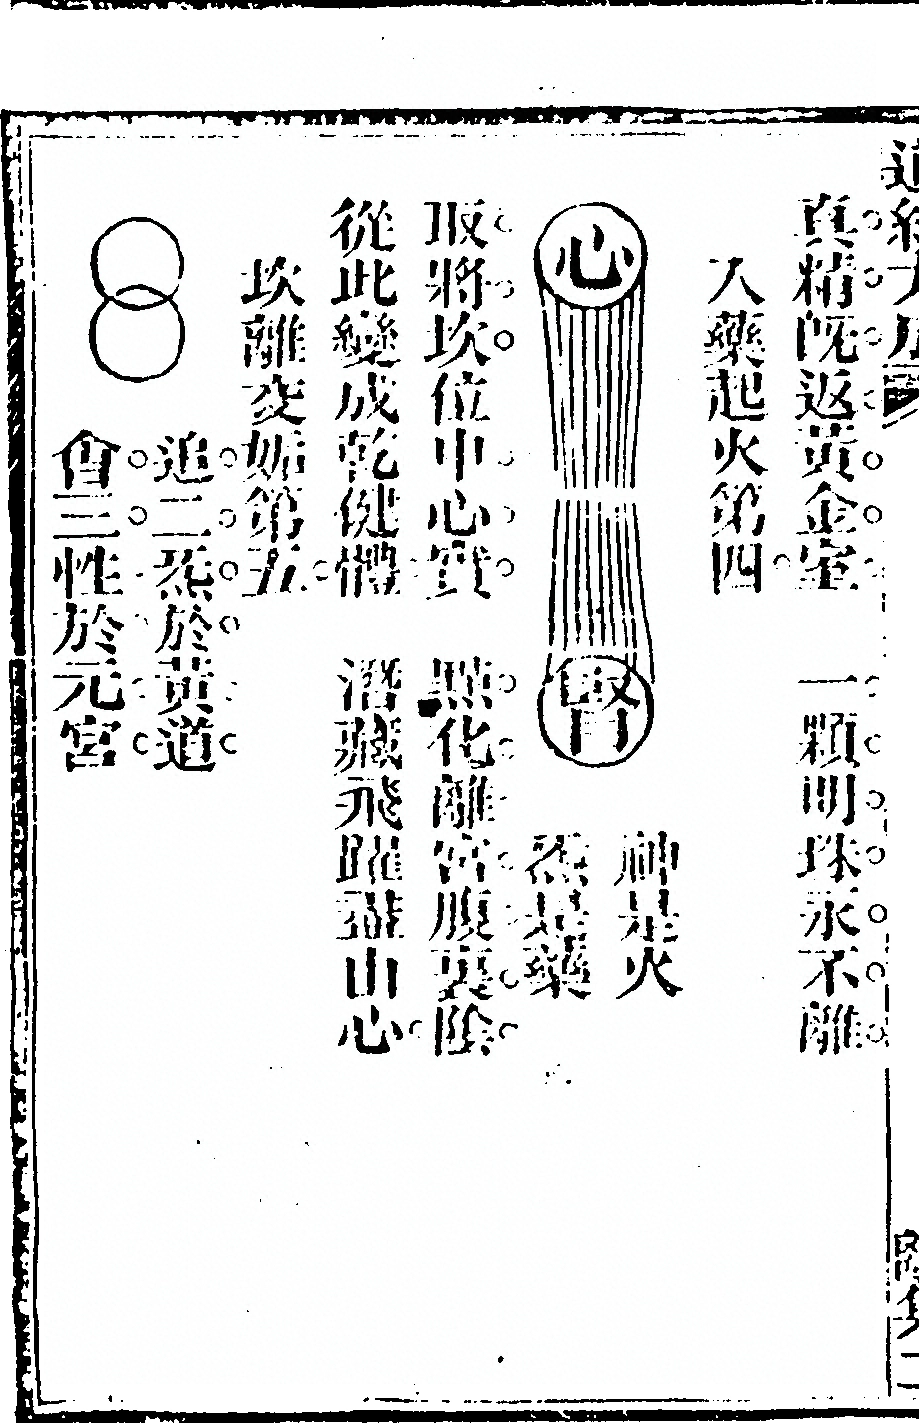 真精旣返黃金室　一顆明珠永不離
入藥起火第四
心
腎
神是火
炁是藥
取將坎位中心實　點化離宮腹裏陰
從此變成乾健體　潛藏飛躍盡由心
坎離交姤第五
追二炁於黃道
會三性於元宮